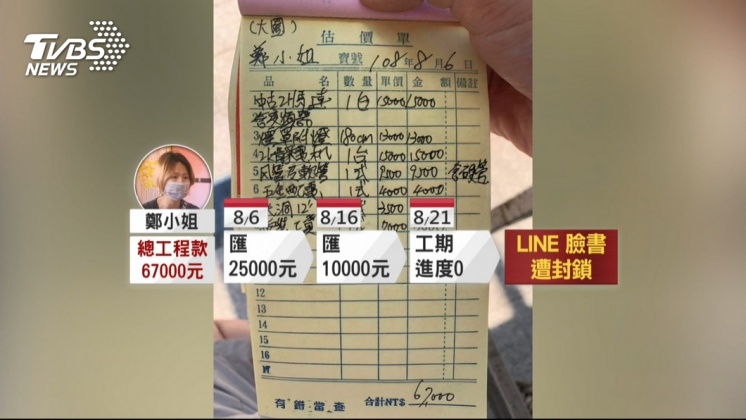 TVBS
NEWS
(大園)
估價單
鄭小姐 寶號 108年8月6日
品名 數量 單價 金額 備註
1台 15000 15000
3 煙罩附燈 180cm 13000 13000
4 1台 15000 15000
5 風管 1式 9500 9500
6 1式 4000 4000
12"
鄭小姐
總工程款
67000元
8/6
匯
25000元
8/16
匯
10000元
8/21
工期
進度0
LINE 臉書
遭封鎖
12
13
14
15
16
有錯當查 合計NT$ 67000